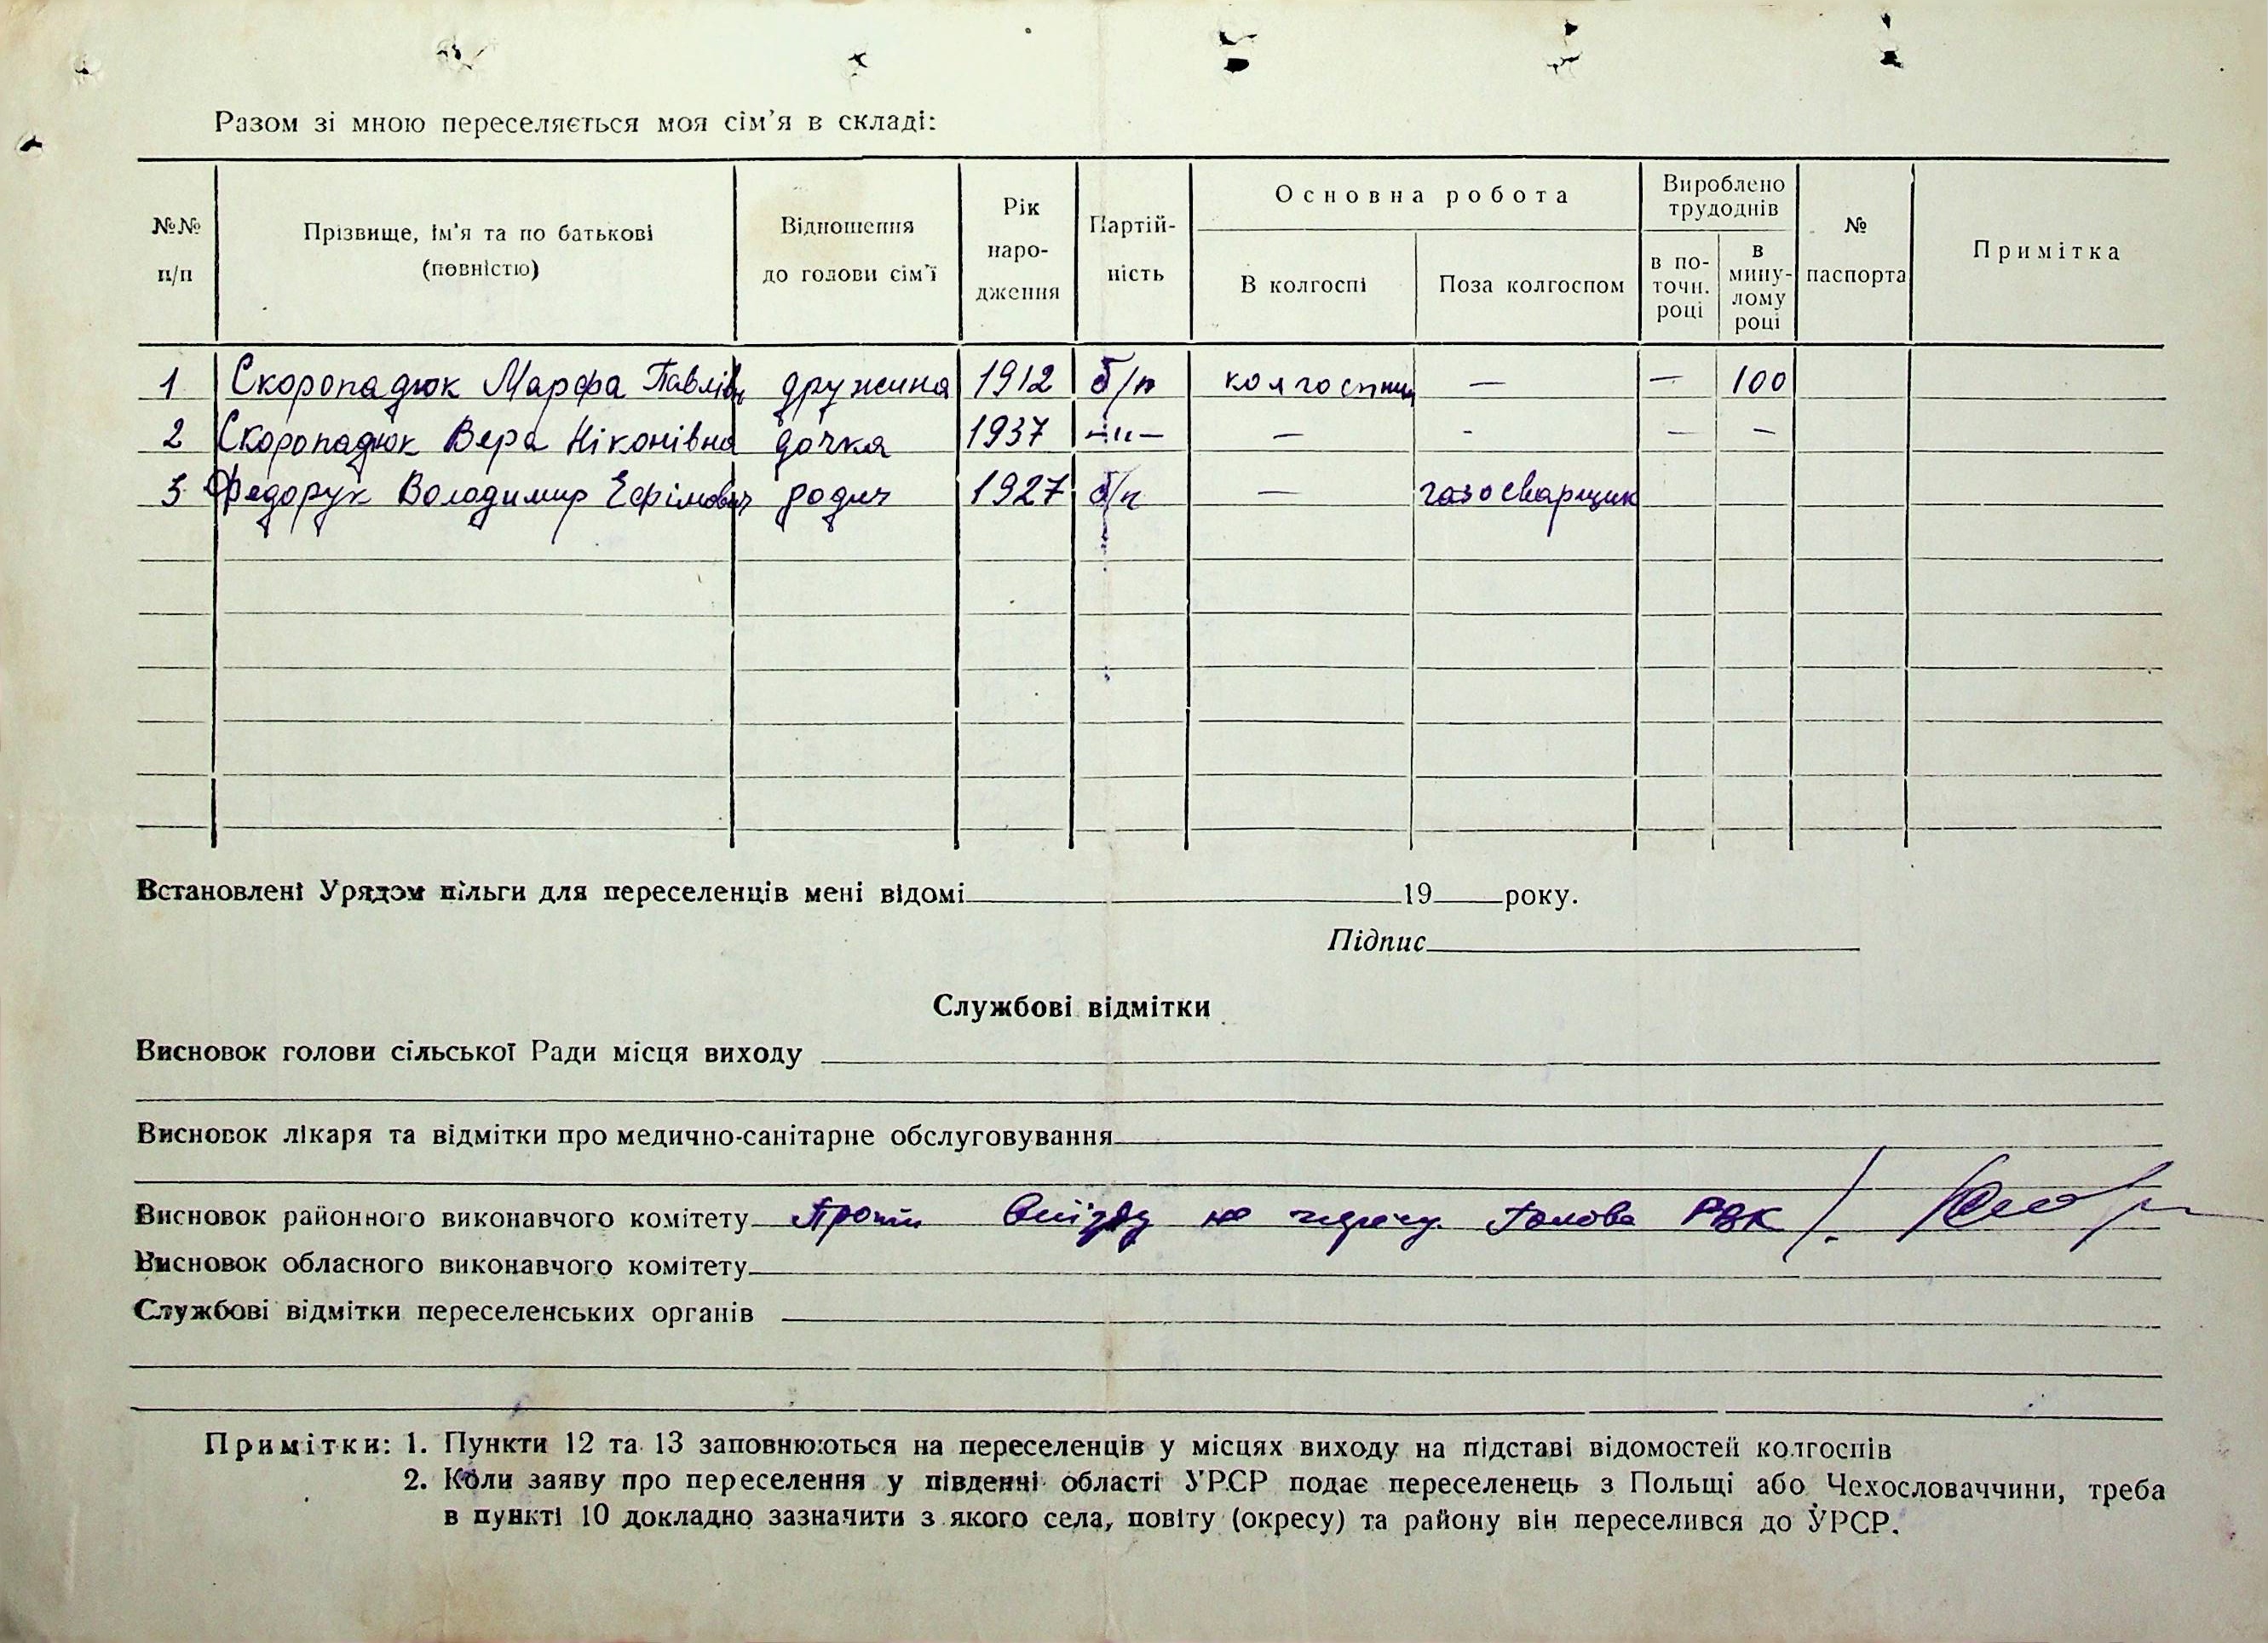 Разом зі мною переселяється моя сім'я в складі:
№№ п/п
Прізвище, ім'я та по батькові (повністю)
Відношення до голови сім'ї
Рік народження
Партійність
Основна робота
В колгоспі
Поза колгоспом
Вироблено трудоднів
в поточн. році
в минулому році
№ паспорта
Примітка
1 Скоропадюк Марфа Павлівн дружина 1912 б/п колгоспниц — — 100
2 Скоропадюк Вера Ніконівна дочка 1937 —"— — - — —
3 Федорук Володимир Єфімович родич 1927 б/п — газосварщик
Встановлені Урядом пільги для переселенців мені відомі 19 року.
Підпис
Службові відмітки
Висновок голови сільської Ради місця виходу
Висновок лікаря та відмітки про медично-санітарне обслуговування
Висновок районного виконавчого комітету Проти виїзду не Голова РВК
Висновок обласного виконавчого комітету
Службові відмітки переселенських органів
Примітки: 1. Пункти 12 та 13 заповнюються на переселенців у місцях виходу на підставі відомостей колгоспів
2. Коли заяву про переселення у південні області УРСР подає переселенець з Польщі або Чехословаччини, треба
в пункті 10 докладно зазначити з якого села, повіту (окресу) та району він переселився до УРСР.